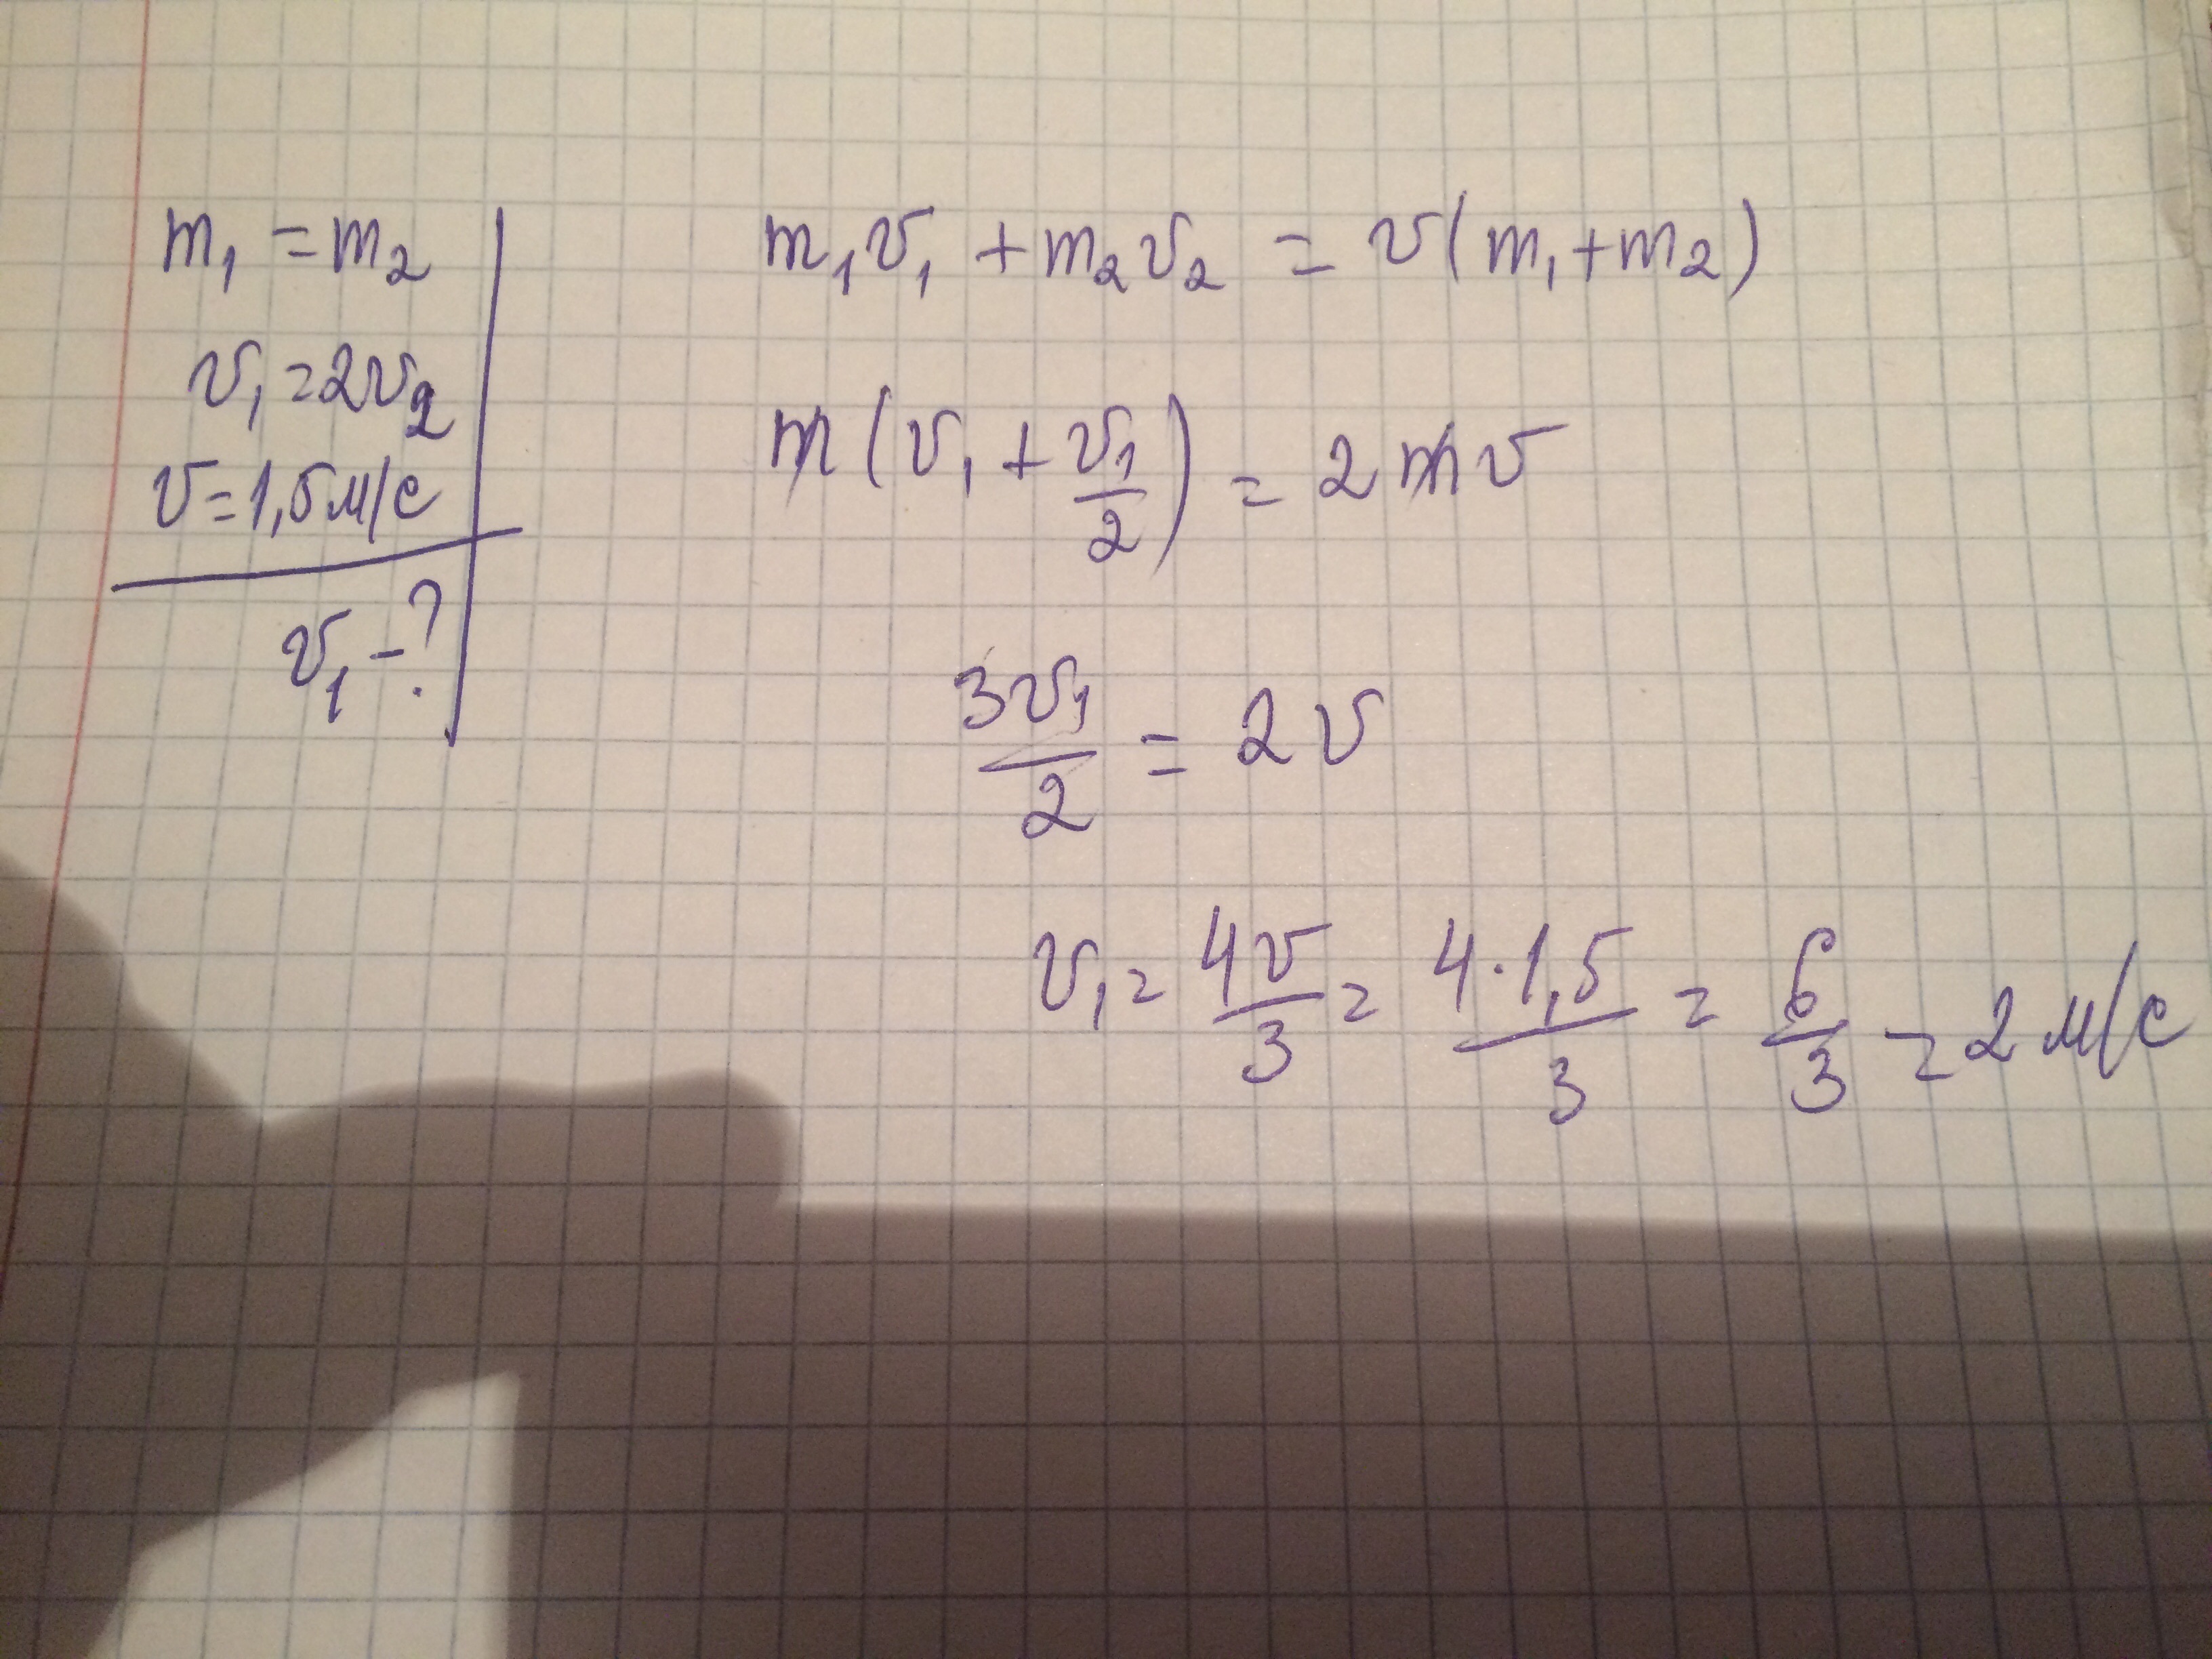 m₁ = m₂
v₁ = 2v₂
v = 1,5 м/с
v₁ - ?
m₁v₁ + m₂v₂ = v(m₁ + m₂)
m(v₁ + v₁/2) = 2mv
3v₁/2 = 2v
v₁ = 4v/3 = 4·1,5/3 = 6/3 = 2 м/с